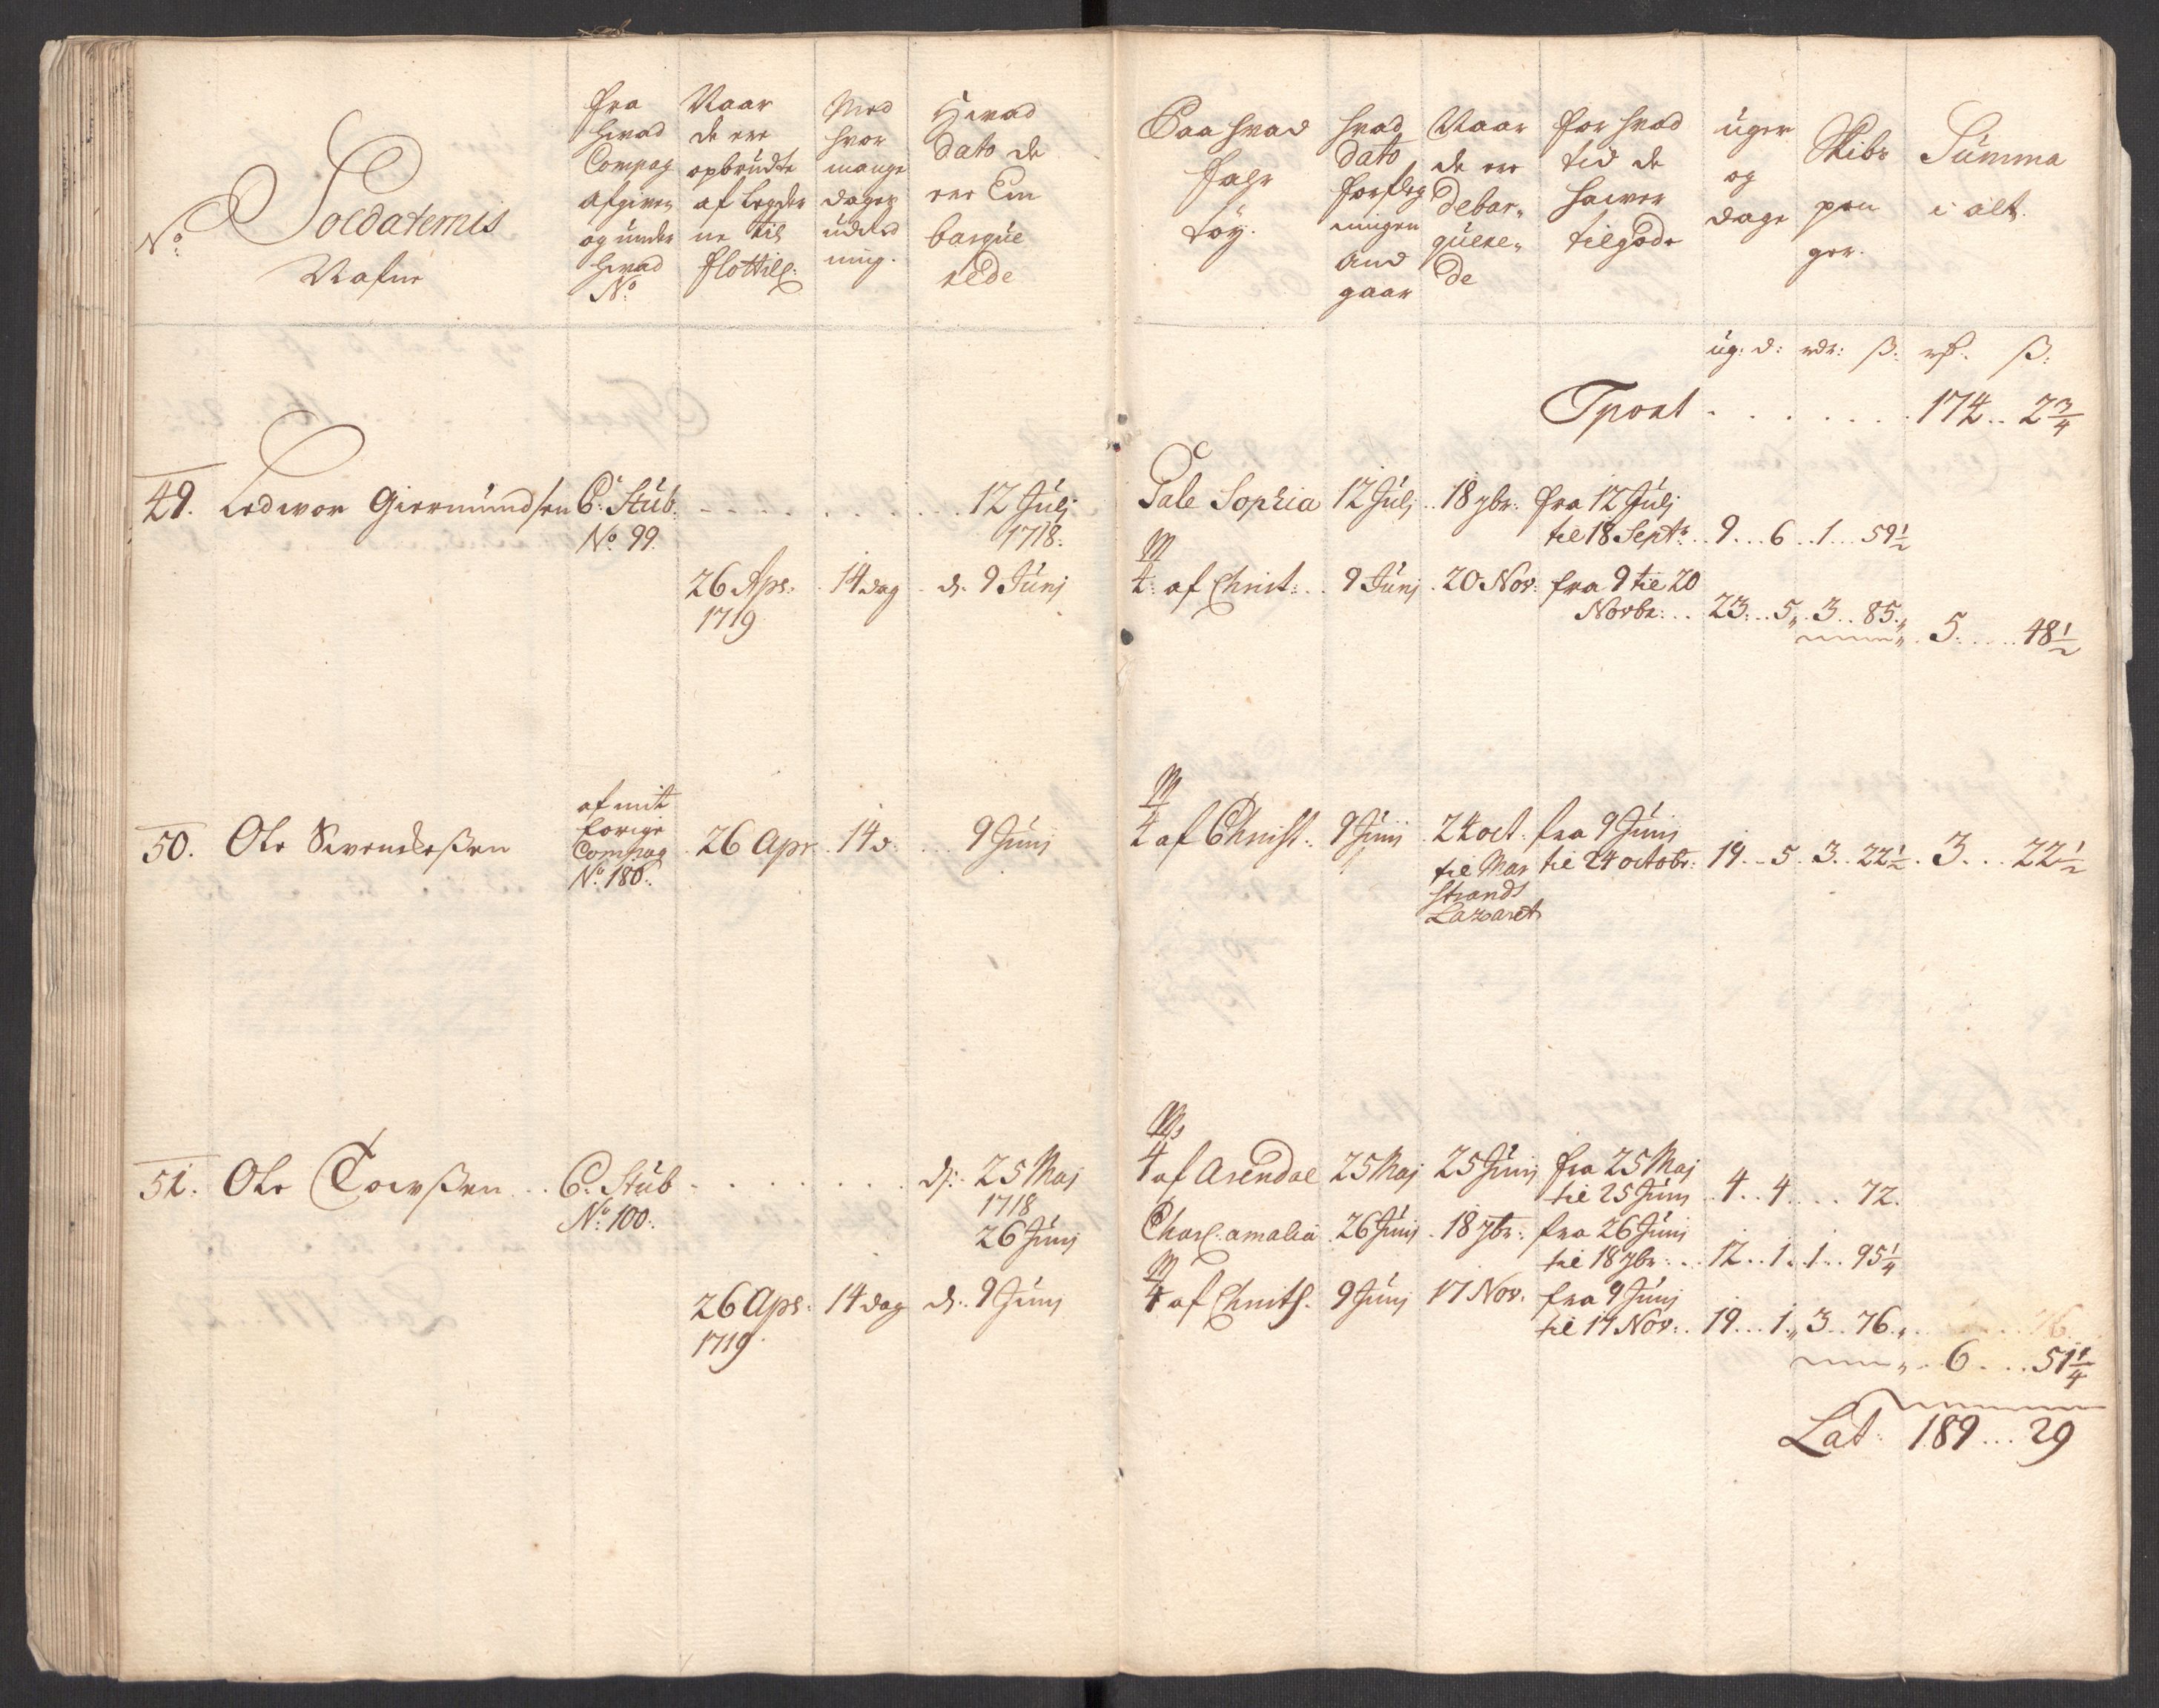 No
Soldaternis
Nafne
fra
hvad
Compag
afgiven
og under
hvad
No
Naar
de ere
opbrudte
af Legder
ne til
flottill:
Med
hvor
mange
dages
uddeel
ning.
Hvad
dato de
ere Em
barque
rede
Paa hvad
fahr
töy.
hvad
dato
forfleg
ningen
and
gaar
Naar
de ere
debar„
quere„
de
for hvad
tid de
hawer
tilgode
uger
og
dage
Skibs
pen
ger.
Summa
i alt.
ug: d: rdr: ß: rd. ß:
Tport . . . . . . . 174 .. 2 3/4
49. Ledwor Giermundsen C: Stüb: - - - . . . . . . 12 Julj
No 99. 1718.
Pale Sophia 12 Julj .. 18 7br: fra 12 Julj
til 18 Septr: .. 9 ... 6 .. 1 ... 59 1/2
26 Apr: . 14 dag . d. 9 Junj
1719
M
4: af Christ: .. 9 Junj . 20 Nov: fra 9 til 20
Novbr: ... 23 ... 5 „ . 3 .. 85 „
„ . 5 . . . . 48 1/2
50. Ole Swendsßen
af mit
forige
Compag
No 180:
. 26 Apr. . 14 d: . . . 9 Junj
M
4 af Christ: . 9 Junij . 24 oct. fra 9 Junj
til Mar til 24 octobr: 19 .. 5 . 3 .. 22 1/2 . 3 ... 22 1/2
strands
Lazaret
51. Ole Toewßen .. C: Stüb - . . . . . . . d: 25 Maj
No 100: 1718
26 Junj
M
4 af Arendal 25 Maj 25 Junj fra 25 Maj
til 25 Junj .. 4 .. 4 . . . 72.
Charl: amalia . 26 Junj . 18 7br: fra 26 Junj
til 18 7br: .. 12 .. 1 .. 1 .. 95 1/4
26 Apr: 14 dag d: 9 Junj
1719.
M
4 af Christ. 9 Junj 17 Nov. fra 9 Junj
til 17 Nov: . 19 ... 1 „ 3 .. 76 „
„ . 6 . . . 51 1/4
Lat: 189 ... 29